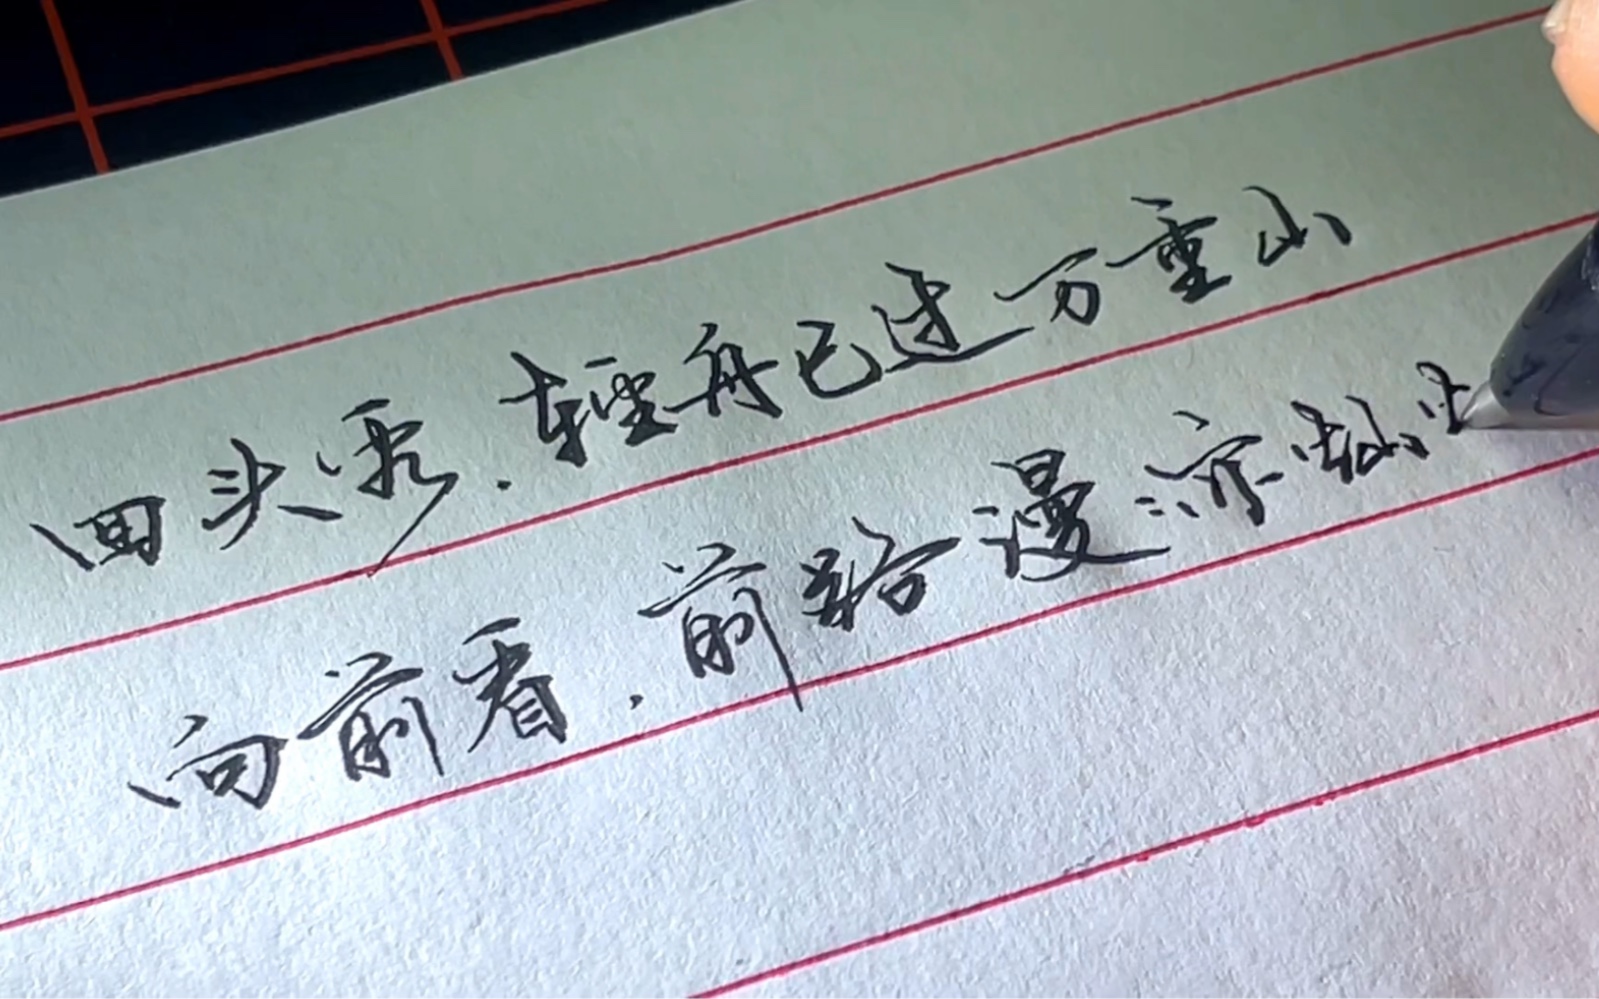 回头看.轻舟已过万重山
向前看.前路漫漫亦灿